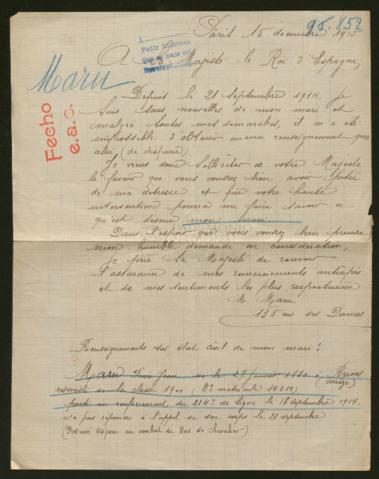 96.852
Paris 15 décembre 1915
A Sa Majesté le Roi d'Espagne,
Maru
Fecho
e.a.c.
Depuis le 21 septembre 1914, je
suis sans nouvelles de mon mari et
malgré toutes mes démarches, il m'a été
impossible d'obtenir aucun renseignement que
celui (de disparu)
Je viens donc solliciter de votre Majesté
la faveur que vous voudrez bien avoir pitié
de ma détresse et que votre haute
intervention pourra me faire savoir ce
qui est devenu mon mari.
Dans l'espoir que vous voudrez bien prendre
mon humble demande en considération,
Je prie Sa Majesté de recevoir
l'assurance de mes remerciements anticipés
et de mes sentiments les plus respectueux
M. Maru
135 rue des Dames
Renseignements sur état civil de mon mari:
Maru né le 27 janvier 1880 à
(Corrèze)
de la classe 1900 (N° matricule 14214)
parti en renforcement du 214e de ligne le 18 septembre 1914.
n'a pas répondu à l'appel de son corps le 21 septembre
(Présumé disparu au combat du Bois de Chevalier)